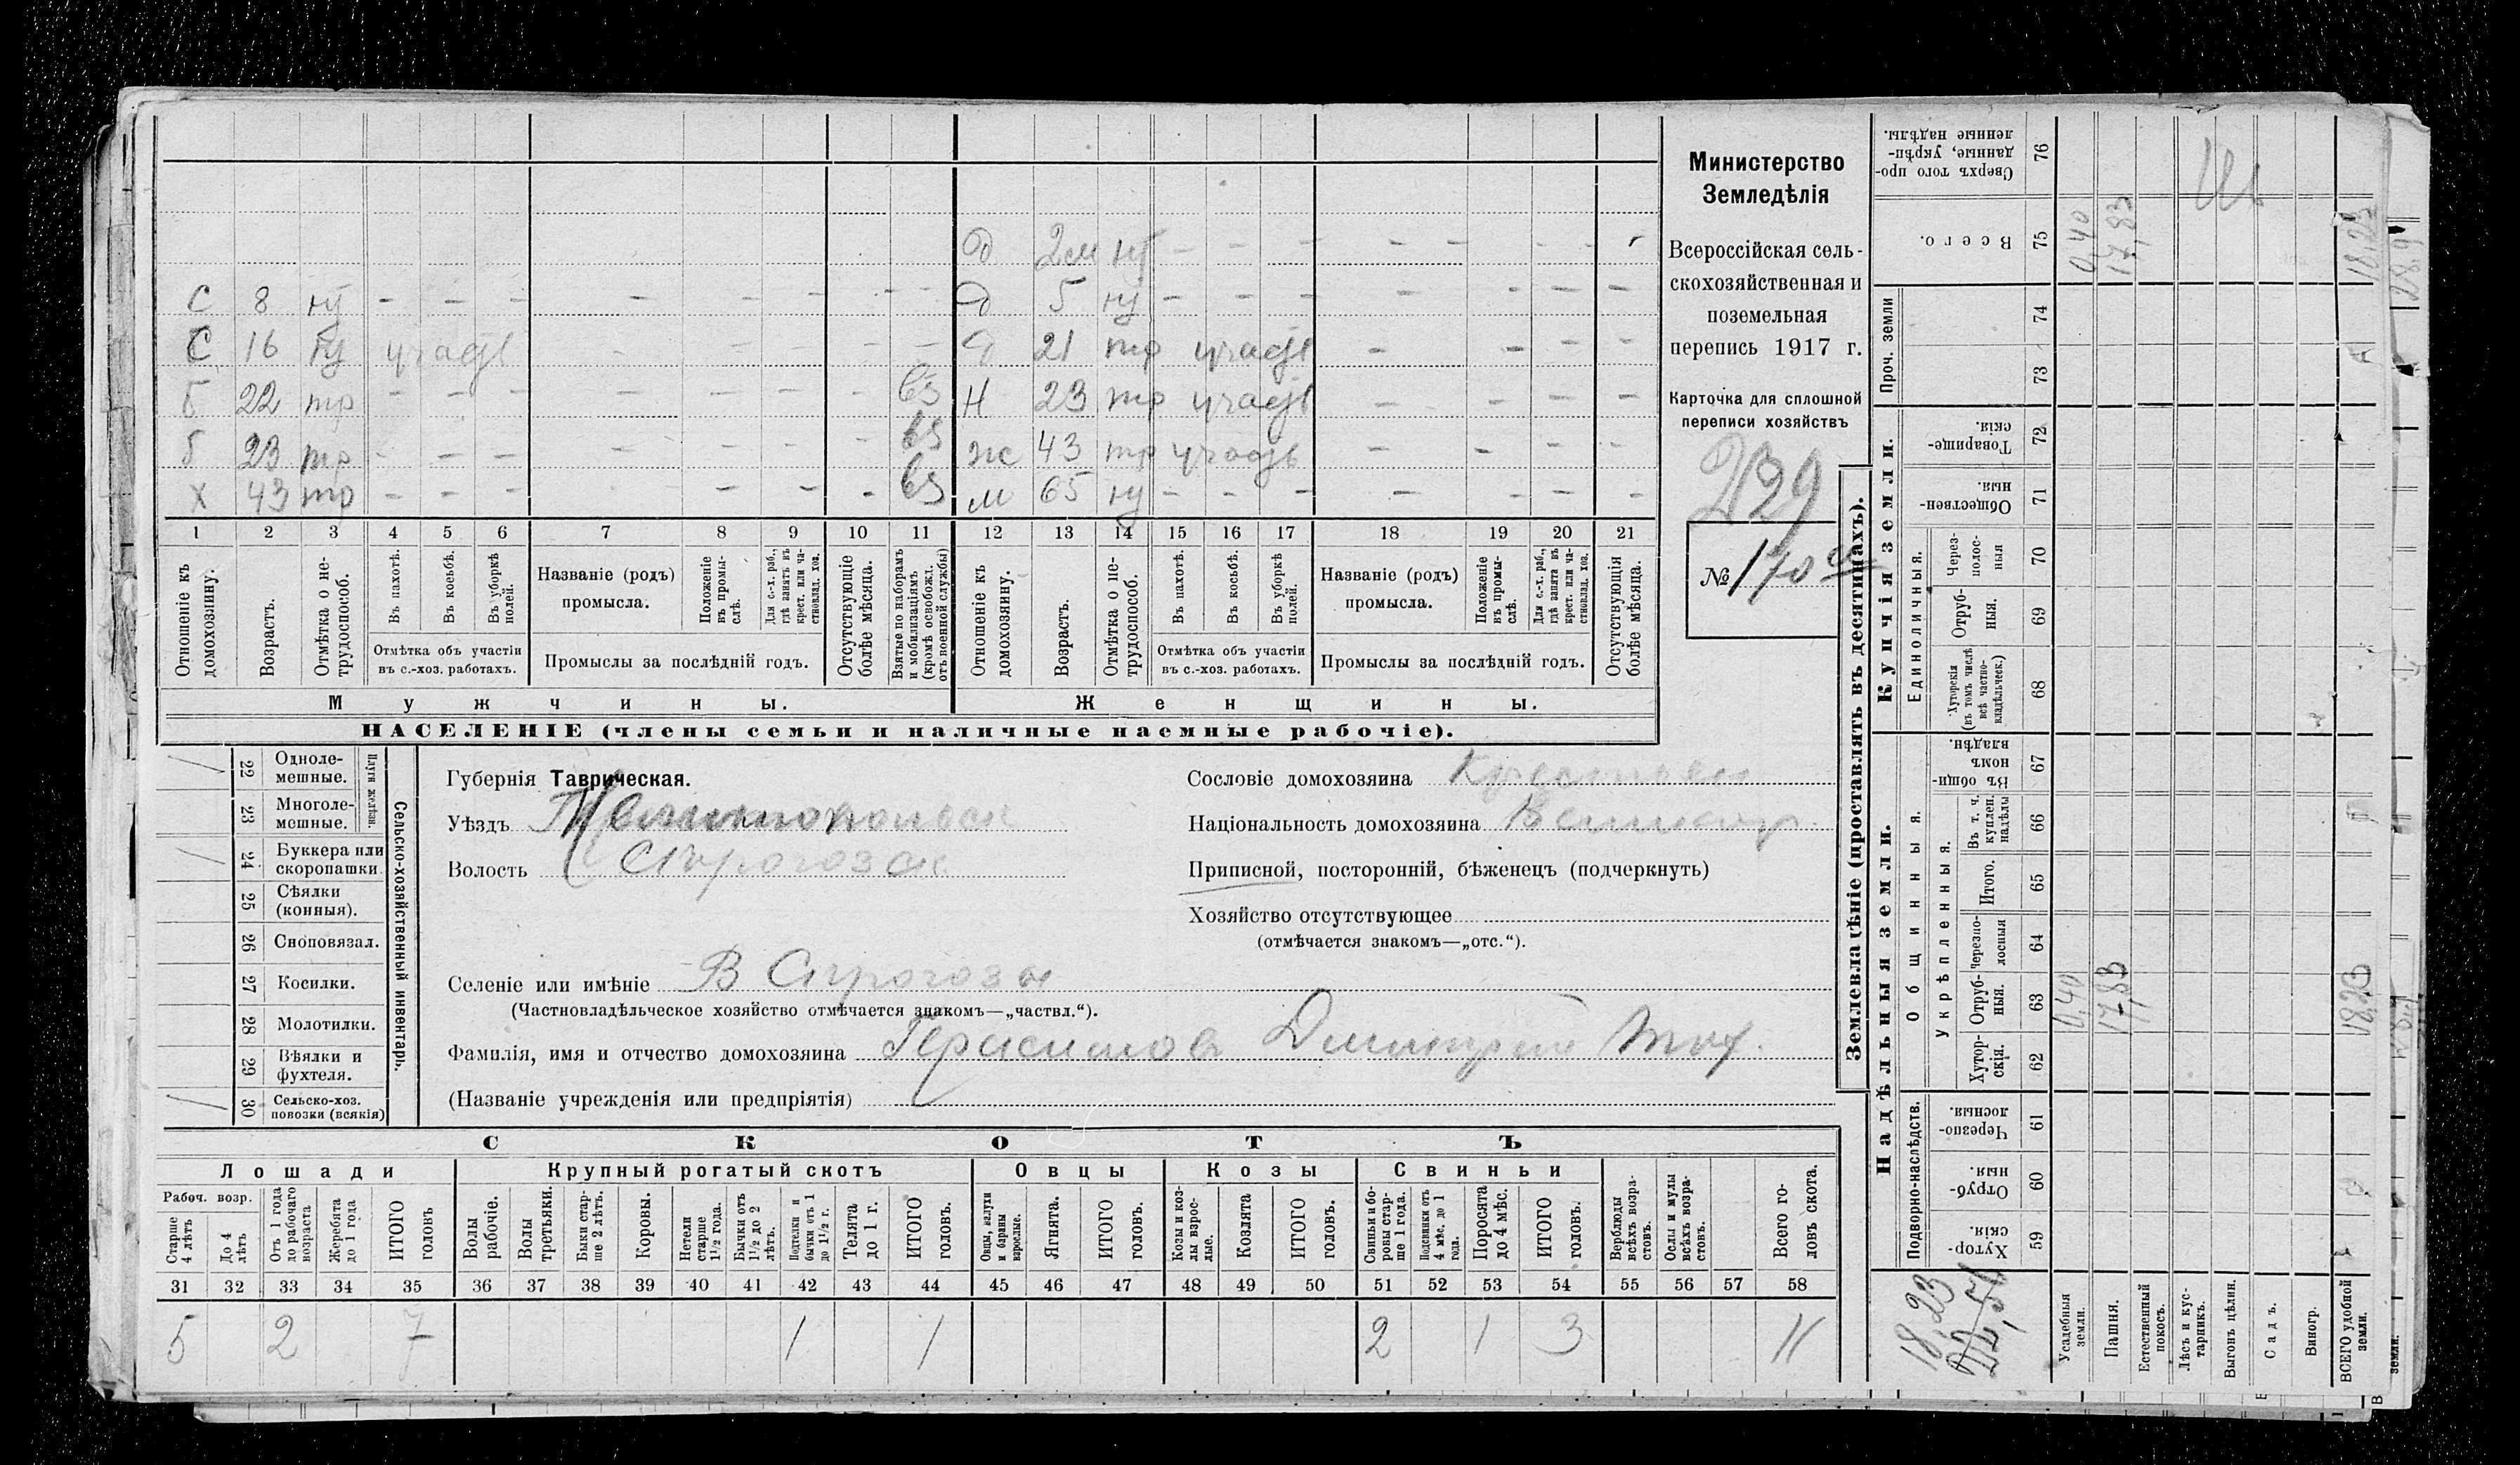 Министерство
Земледѣлія
Всероссійская сель-
скохозяйственная и
поземельная
перепись 1917 г.
Карточка для сплошной
переписи хозяйствъ
239
№ 170
д 2м нт - - - - - - -
С 8 нт - - - - - - - д 5 нт - - - - - - -
С 16 нт участв - - - - - 21 тр участв - - - -
Б 22 тр - - - - - - - вз Н 23 тр участв - - - -
Б 23 тр - - - - - - - вз ж 43 тр участв - - - -
Х 43 тр - - - - - - - вз м 65 нт - - - - - - -
1 2 3 4 5 6 7 8 9 10 11 12 13 14 15 16 17 18 19 20 21
Отношеніе къ домохозяину.
Возрастъ.
Отмѣтка о не-трудоспособ.
Въ пахотѣ.
Въ косьбѣ.
Въ уборкѣ полей.
Отмѣтка объ участіи въ с.-хоз. работахъ.
Названіе (родъ) промысла.
Положеніе въ промы-слѣ.
Для с.-х. раб., гдѣ занятъ въ крест. или ча-стновлад. хоз.
Промыслы за послѣдній годъ.
Отсутствующіе болѣе мѣсяца.
Взятые по наборамъ и мобилизаціямъ (кромѣ освобожд. отъ военной службы)
Отношеніе къ домохозяину.
Возрастъ.
Отмѣтка о не-трудоспособ.
Въ пахотѣ.
Въ косьбѣ.
Въ уборкѣ полей.
Отмѣтка объ участіи въ с.-хоз. работахъ.
Названіе (родъ) промысла.
Положеніе въ промы-слѣ.
Для с.-х. раб., гдѣ занята въ крест. или ча-стновлад. хоз.
Промыслы за послѣдній годъ.
Отсутствующія болѣе мѣсяца.
Мужчины. Женщины.
НАСЕЛЕНІЕ (члены семьи и наличные наемные рабочіе).
Сельско-хозяйственный инвентарь.
Плуги желѣзн.
/ 22 Одноле-мешные.
23 Многоле-мешные.
/ 24 Буккера или скоропашки
25 Сѣялки (конныя).
26 Сноповязал.
27 Косилки.
28 Молотилки.
29 Вѣялки и фухтеля.
/ 30 Сельско-хоз. повозки (всякія)
Губернія Таврическая.
Уѣздъ Мелитопольск
Волость Сѣрогозск
Селеніе или имѣніе В Сѣрогозы
(Частновладѣльческое хозяйство отмѣчается знакомъ—„частвл.“).
Фамилія, имя и отчество домохозяина Герасимов Дмитрий Тих.
(Названіе учрежденія или предпріятія)
Сословіе домохозяина Крестьян
Національность домохозяина Великор.
Приписной, посторонній, бѣженецъ (подчеркнуть)
Хозяйство отсутствующее
(отмѣчается знакомъ—„отс.“).
СКОТЪ
Лошади Крупный рогатый скотъ Овцы Козы Свиньи
Рабоч. возр.
Старше 4 лѣтъ
До 4 лѣтъ
Отъ 1 года до рабочаго возраста
Жеребята до 1 года
ИТОГО головъ
Волы рабочіе.
Волы третьяки.
Быки стар-ше 2 лѣтъ.
Коровы.
Нетели старше 1½ года.
Бычки отъ 1½ до 2 лѣтъ.
Подтелки и бычки отъ 1 до 1½ г.
Телята до 1 г.
ИТОГО головъ.
Овцы, валухи и бараны взрослые.
Ягнята.
ИТОГО головъ.
Козы и коз-лы взрос-лые.
Козлята
ИТОГО головъ.
Свиньи и бо-ровы стар-ше 1 года.
Подсвинки отъ 4 мѣс. до 1 года.
Поросята до 4 мѣс.
ИТОГО головъ.
Верблюды всѣхъ возра-стовъ.
Ослы и мулы всѣхъ возра-стовъ.
Всего го-ловъ скота.
31 32 33 34 35 36 37 38 39 40 41 42 43 44 45 46 47 48 49 50 51 52 53 54 55 56 57 58
5 2 7 1 1 2 1 3 11
Землевладѣніе (проставлять въ десятинахъ).
Надѣльныя земли. Купчія земли. Проч. земли
Подворно-наслѣдств.
Общинныя.
Укрѣпленныя.
Единоличныя.
Хутор-скія. 59
Отруб-ныя. 60
Черезпо-лосныя. 61
Хутор-скія. 62
Отруб-ныя. 63
Черезпо-лосныя 64
Итого. 65
Въ т. ч. куплен. надѣлы 66
Въ общин-номъ владѣн. 67
Хуторскія (въ томъ числѣ всѣ частно-владѣльческ.) 68
Отруб-ныя. 69
Через-полос-ныя 70
Обществен-ныя. 71
Товарище-скія. 72
73
74
Всего. 75
Сверхъ того про-данные, укрѣп-ленные надѣлы. 76
18,23
Усадебныя земли. 0,40 0,40
Пашня. 17,83 17,83
Естественный покосъ.
Лѣсъ и кус-тарникъ.
Выгонъ цѣлин.
Садъ.
Виногр.
ВСЕГО удобной земли. 18,23 18,23
земли.
28,9